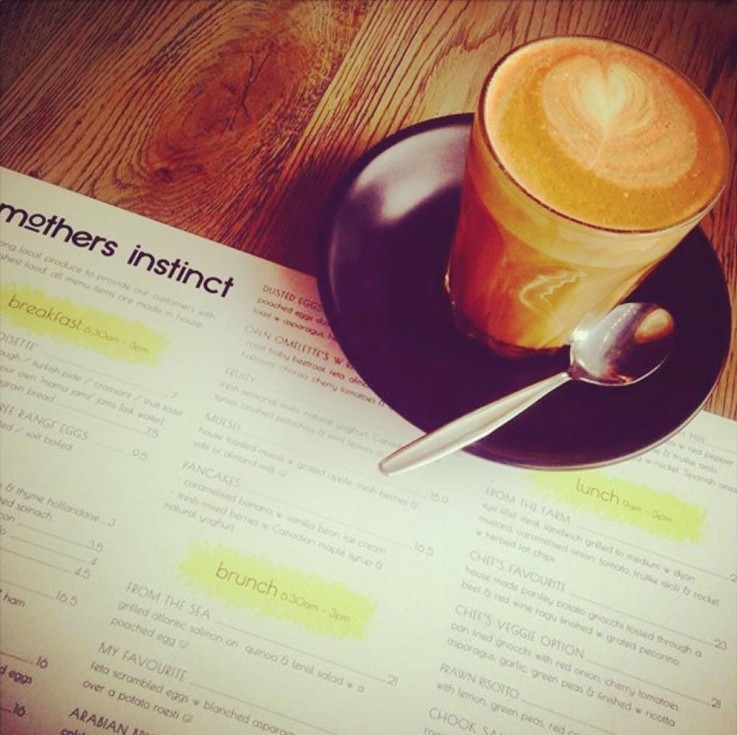 mothers instinct
local produce to provide our customers with
food. all menu items are made in house.
breakfast 6:30am - 3pm
/ turkish pide / croissant / fruit toast
our own 'mama jams' jams (ask waiter)
grain bread 7.5
RANGE EGGS
/ soft boiled 9.5
& thyme hollandaise 3
spinach,
3.5
4
4.5
ham 16.5
16
eggs
16
DUSTED EGGS
poached eggs
toast w asparagus,
OPEN OMELETTE'S W
roast baby beetroot feta
halloumi, chorizo cherry tomatoes &
FRUITY
fresh seasonal fruits natural yoghurt
syrup, crushed pistachios & mint leaves
MUESLI
house toasted muesli w grated apple, fresh berries &
side of almond milk 15.0
PANCAKES
- caramelised banana w vanilla bean ice cream
- fresh mixed berries w Canadian maple syrup &
natural yoghurt 16.5
brunch 6:30am - 3pm
FROM THE SEA
grilled atlantic salmon on quinoa & lentil salad w a
poached egg 21
MY FAVOURITE
feta scrambled eggs w blanched
over a potato roesti
ARABIAN
w red pepper
& truffle aioli
w rocket, Spanish
lunch 9am - 3pm
FROM THE FARM
eye fillet steak sandwich grilled to medium w dijon
mustard, caramelised onion, tomato, truffle aioli & rocket
w herbed fat chips
CHEF'S FAVOURITE
house made parsley potato gnocchi tossed through a
beef & red wine ragu finished w grated pecorino 20
CHEF'S VEGGIE OPTION
pan fried gnocchi with red onion, cherry tomatoes,
asparagus, garlic, green peas & finished w ricotta 21
PRAWN RISOTTO
with lemon, green peas, red
CHOOK